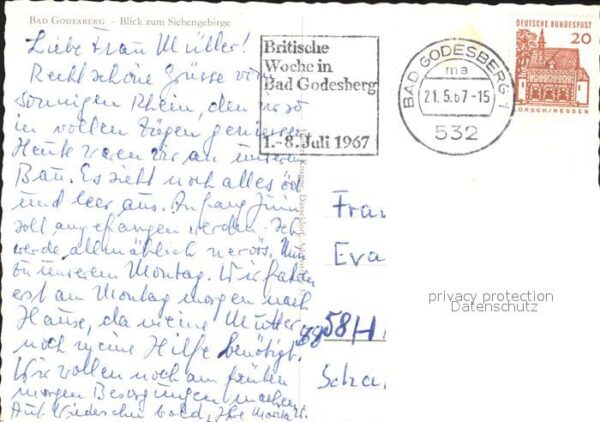 BAD GODESBERG – Blick zum Siebengebirge
Liebe Frau Müller!
Recht schöne Grüsse vom
sonnigen Rhein, den wir so
in vollen Zügen genießen
Heute waren wir an unserem
Bau. Es sieht noch alles öd
und leer aus. Anfang Juni
soll angefangen werden. Ich
werde allmählich nervös. Nun
zu unserem Montag. Wir fahren
erst am Montag morgen nach
Hause, da meine Mutter
noch meine Hilfe benötigt.
Wir wollen noch am frühen
morgen Besorgungen machen
Auf Wiedersehen bald, Ihre
Britische
Woche in
Bad Godesberg
1.-8. Juli 1967
BAD GODESBERG 1
ma
21.5.67-15
532
DEUTSCHE BUNDESPOST
20
LORSCH/HESSEN
Frau
Eva
58 H
Scha
privacy protection
Datenschutz